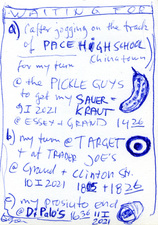 WAITING FOR
a) (after jogging on the track
of PACE HIGH SCHOOL
for my turn (Chinatown)
@ the PICKLE GUYS
to get my SAUER-
KRAUT
9 I 2021
@ ESSEX + GRAND 14 26
b) my turn @ TARGET
+ at TRADER JOE'S
@ Grand + Clinton Str.
10 I 2021 1805 + 1826
c) my prosciutto end
@ Di Palo's 1636 11 I
2021